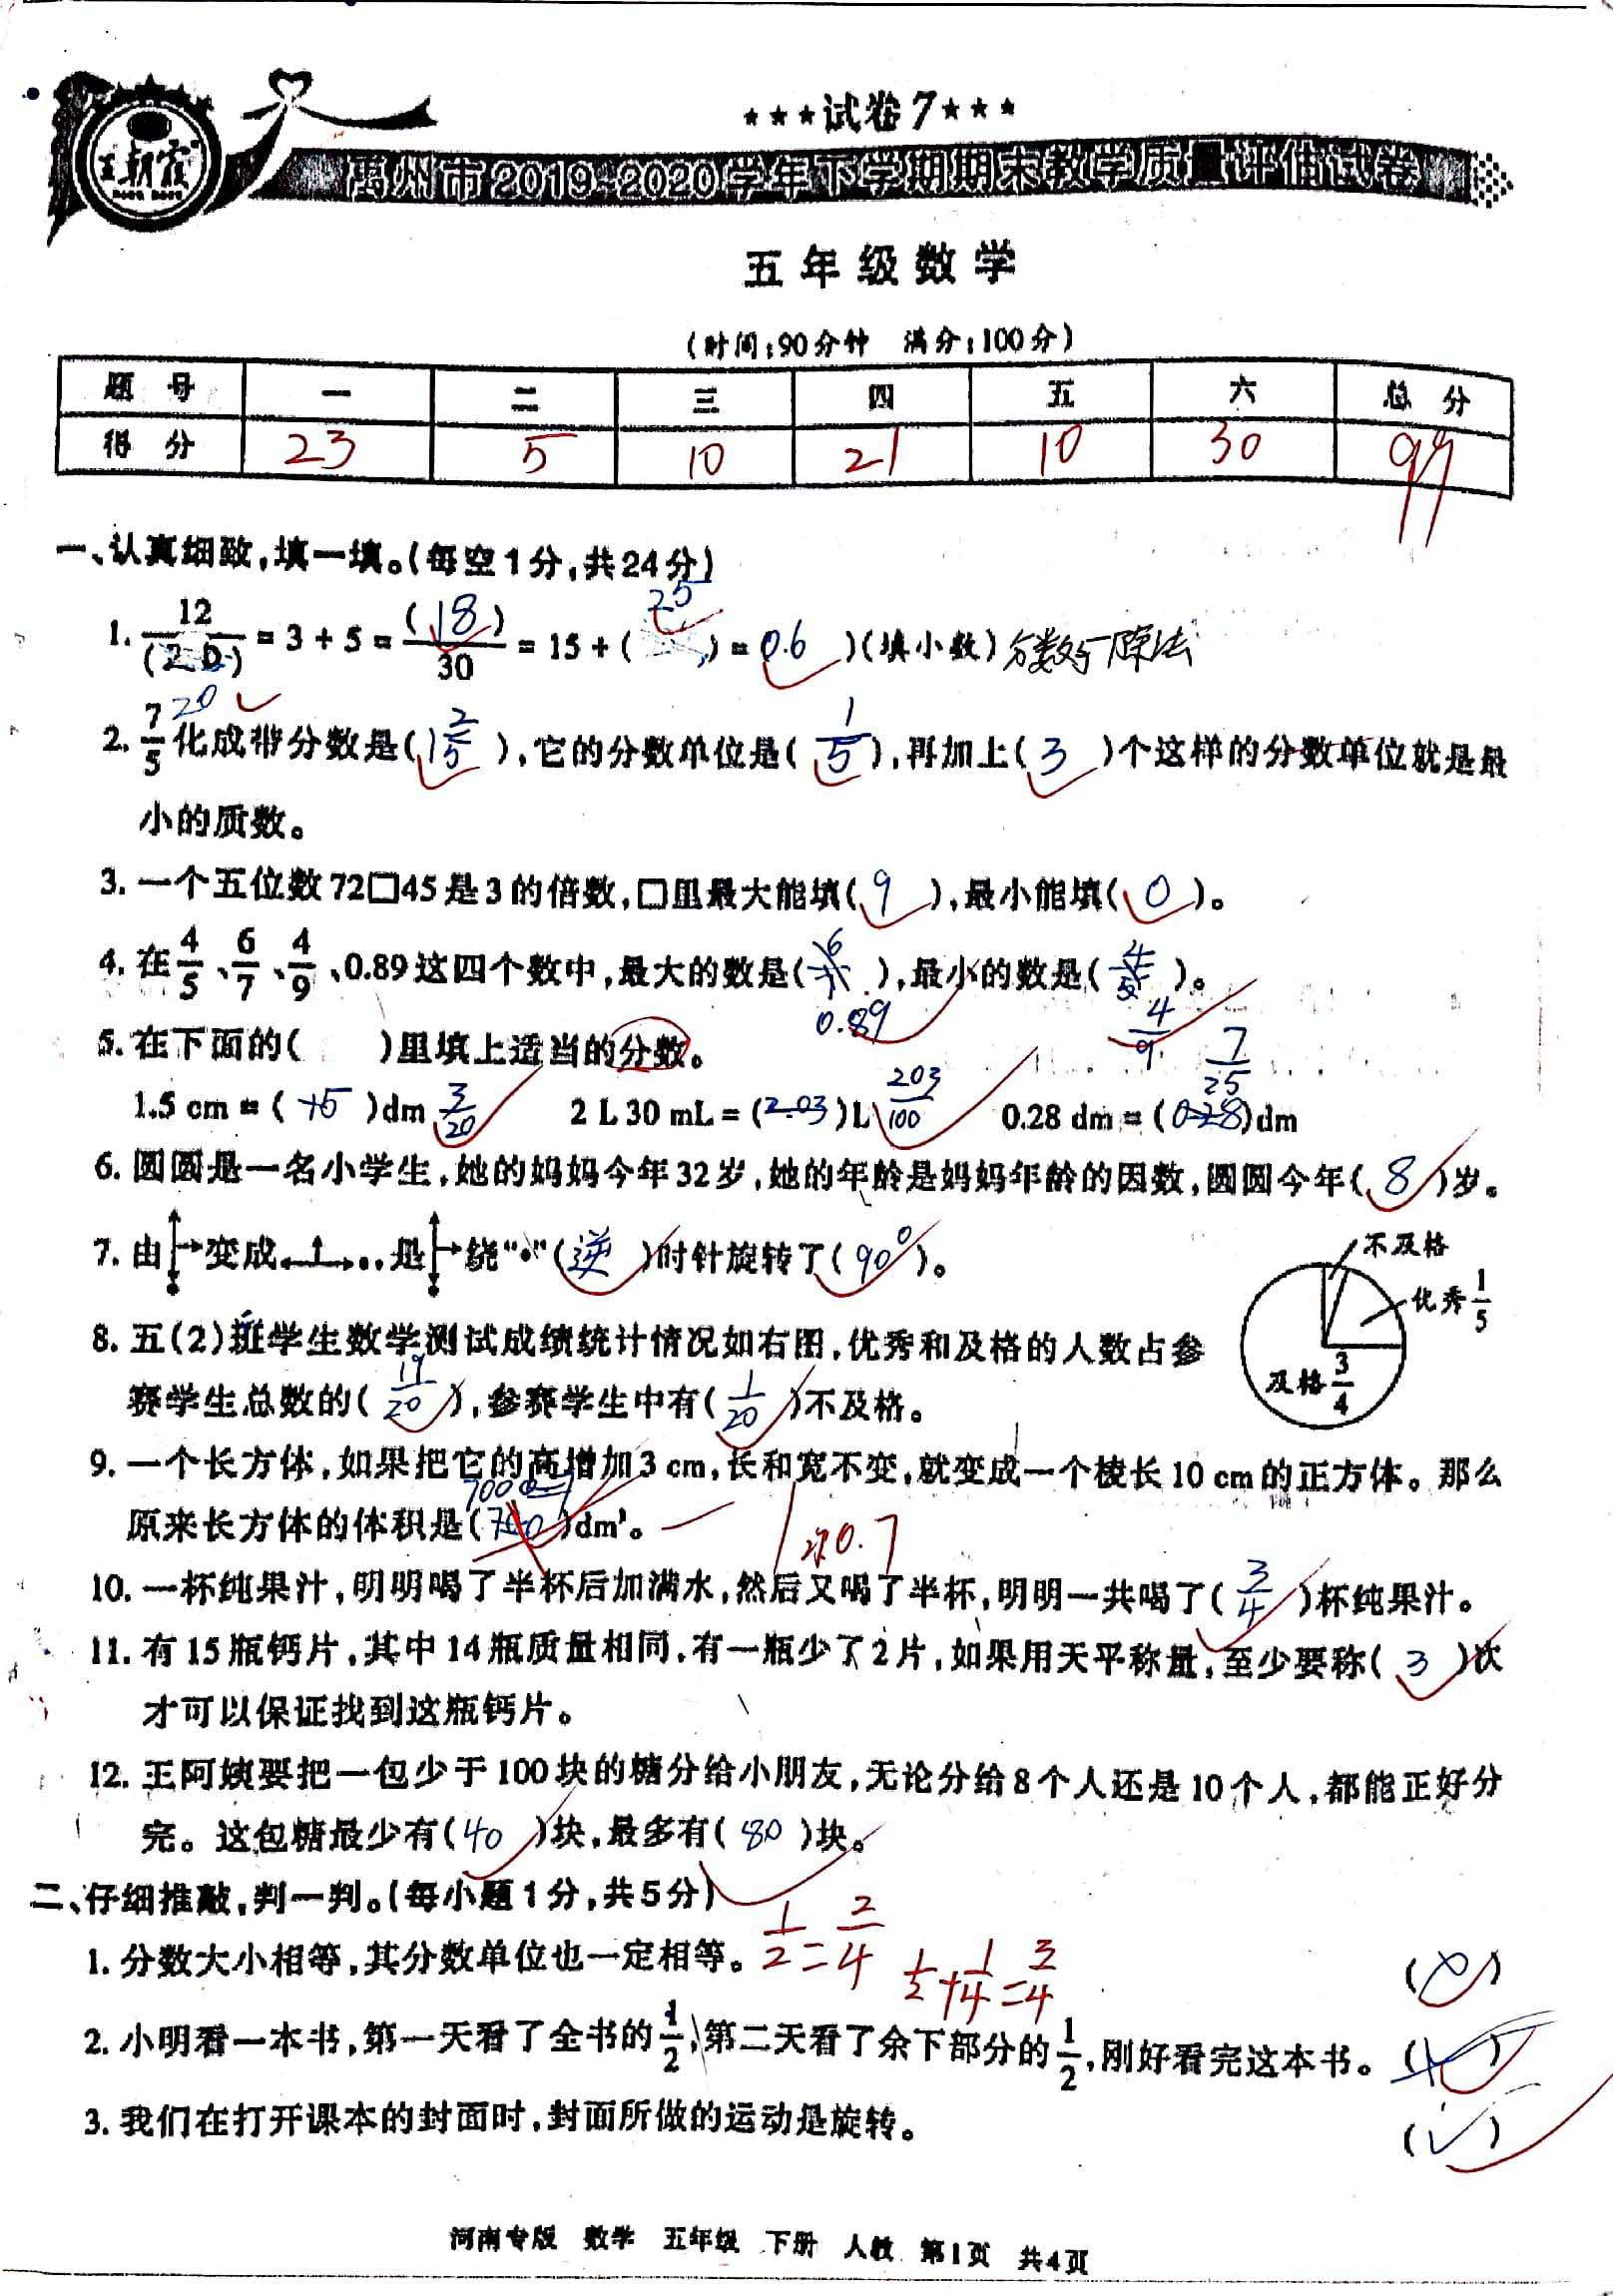 王朝霞
★★★试卷7★★★
禹州市2019-2020学年下学期期末教学质量评估试卷
五年级数学
(时间:90分钟 满分:100分)
题号 一 二 三 四 五 六 总分
得分 23 5 10 21 10 30 99
一、认真细致,填一填。(每空1分,共24分)
1. 12/(20) = 3÷5 = (18)/30 = 15÷( 25 ) = 0.6 )(填小数) 分数与除法
20
2. 7/5化成带分数是(1 2/5),它的分数单位是( 1/5 ),再加上( 3 )个这样的分数单位就是最
小的质数。
3. 一个五位数72□45是3的倍数,□里最大能填( 9 ),最小能填( 0 )。
4. 在4/5、6/7、4/9、0.89这四个数中,最大的数是( 6/7 ),最小的数是( 4/5 )。
0.89 4/9
5. 在下面的( )里填上适当的分数。
1.5 cm = ( 15 )dm 3/20 2 L 30 mL = (2.03)L 203/100 0.28 dm = (0.28)dm 7/25
6. 圆圆是一名小学生,她的妈妈今年32岁,她的年龄是妈妈年龄的因数,圆圆今年( 8 )岁。
7. 由 变成 ,是 绕“•”( 逆 )时针旋转了( 90° )。
不及格
优秀1/5
及格3/4
8. 五(2)班学生数学测试成绩统计情况如右图,优秀和及格的人数占参
赛学生总数的( 19/20 ),参赛学生中有( 1/20 )不及格。
9. 一个长方体,如果把它的高增加3 cm,长和宽不变,就变成一个棱长10 cm的正方体。那么
原来长方体的体积是(700)dm³。 0.7
10. 一杯纯果汁,明明喝了半杯后加满水,然后又喝了半杯,明明一共喝了( 3/4 )杯纯果汁。
11. 有15瓶钙片,其中14瓶质量相同,有一瓶少了2片,如果用天平称量,至少要称( 3 )次
才可以保证找到这瓶钙片。
12. 王阿姨要把一包少于100块的糖分给小朋友,无论分给8个人还是10个人,都能正好分
完。这包糖最少有( 40 )块,最多有( 80 )块。
二、仔细推敲,判一判。(每小题1分,共5分)
1. 分数大小相等,其分数单位也一定相等。 1/2=2/4 (×)
1/2+1/4=3/4
2. 小明看一本书,第一天看了全书的1/2,第二天看了余下部分的1/2,刚好看完这本书。 (×)
3. 我们在打开课本的封面时,封面所做的运动是旋转。 (√)
河南专版 数学 五年级 下册 人教 第1页 共4页